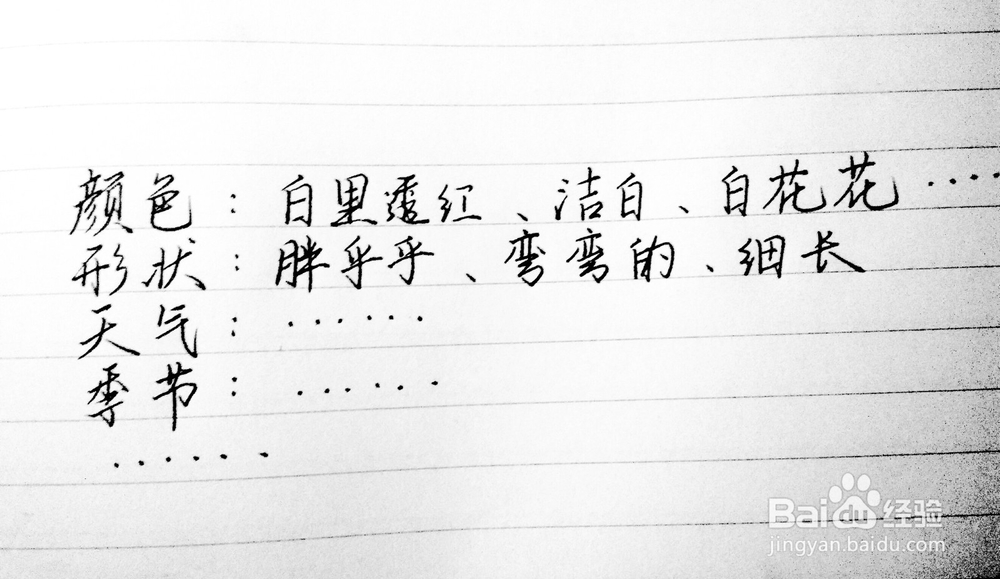 颜色：白里透红、洁白、白花花……
形状：胖乎乎、弯弯的、细长
天气：……
季节：……
……
Baidu 经验
jingyan.baidu.com